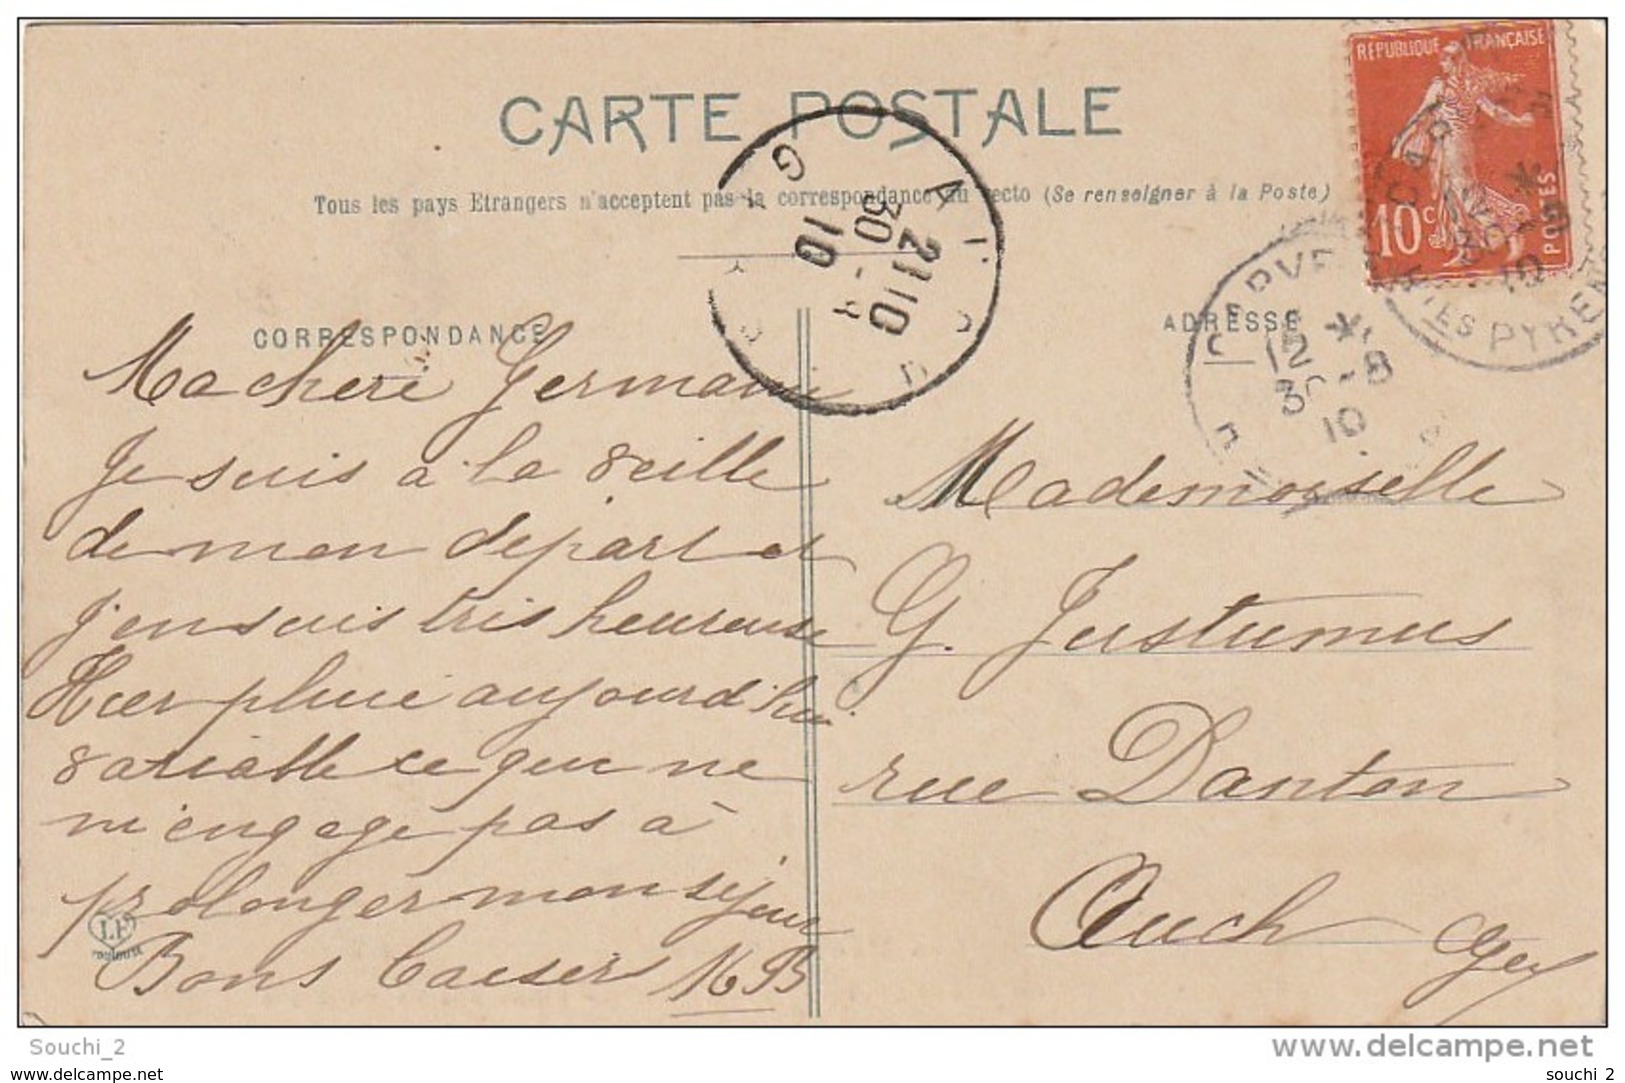 CARTE POSTALE
Tous les pays Etrangers n'acceptent pas la correspondance au recto (Se renseigner à la Poste)
REPUBLIQUE FRANÇAISE
10c
POSTES
CORRESPONDANCE
Ma cheri Germaine
Je suis à la veille
de mon départ et
j'en suis tris heureuse
Hier pluie aujourd'hui
variable ce que ne
m'engage pas à
prolonger mon séjour
Bons baisers MB
LF
Toulouse
ADRESSE
Mademoiselle
G. Justumus
rue Danton
Auch Gers
21 10
30 - 8
10
12 *
30 - 8
10
Htes PYREN
Souchi_2
www.delcampe.net
souchi_2
www.delcampe.net
souchi_2